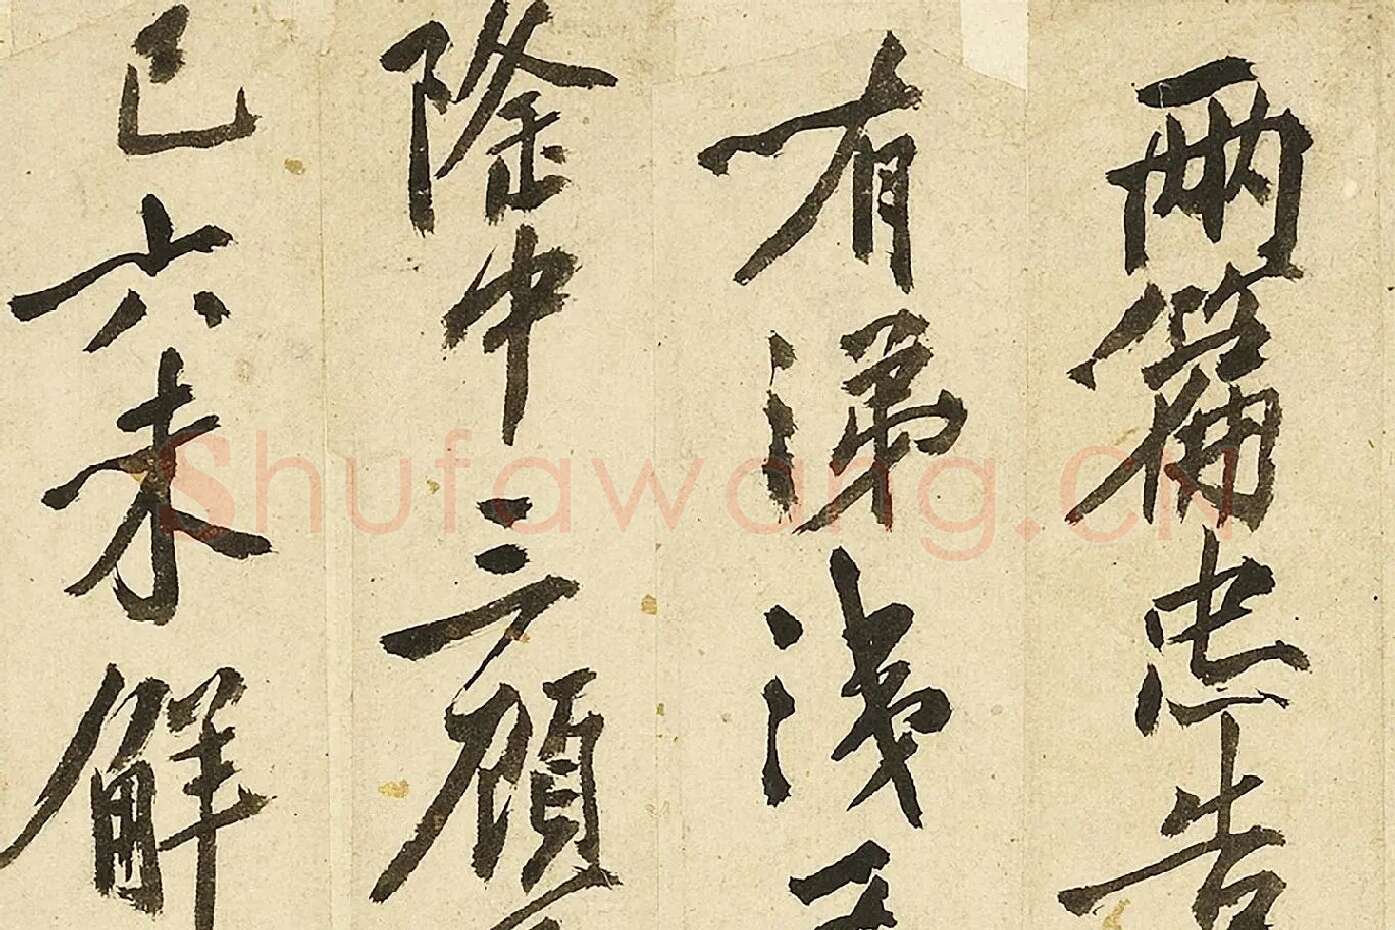 兩篇忠告
有涕淺
隆中三顧
已六未解
Shufawang.CN